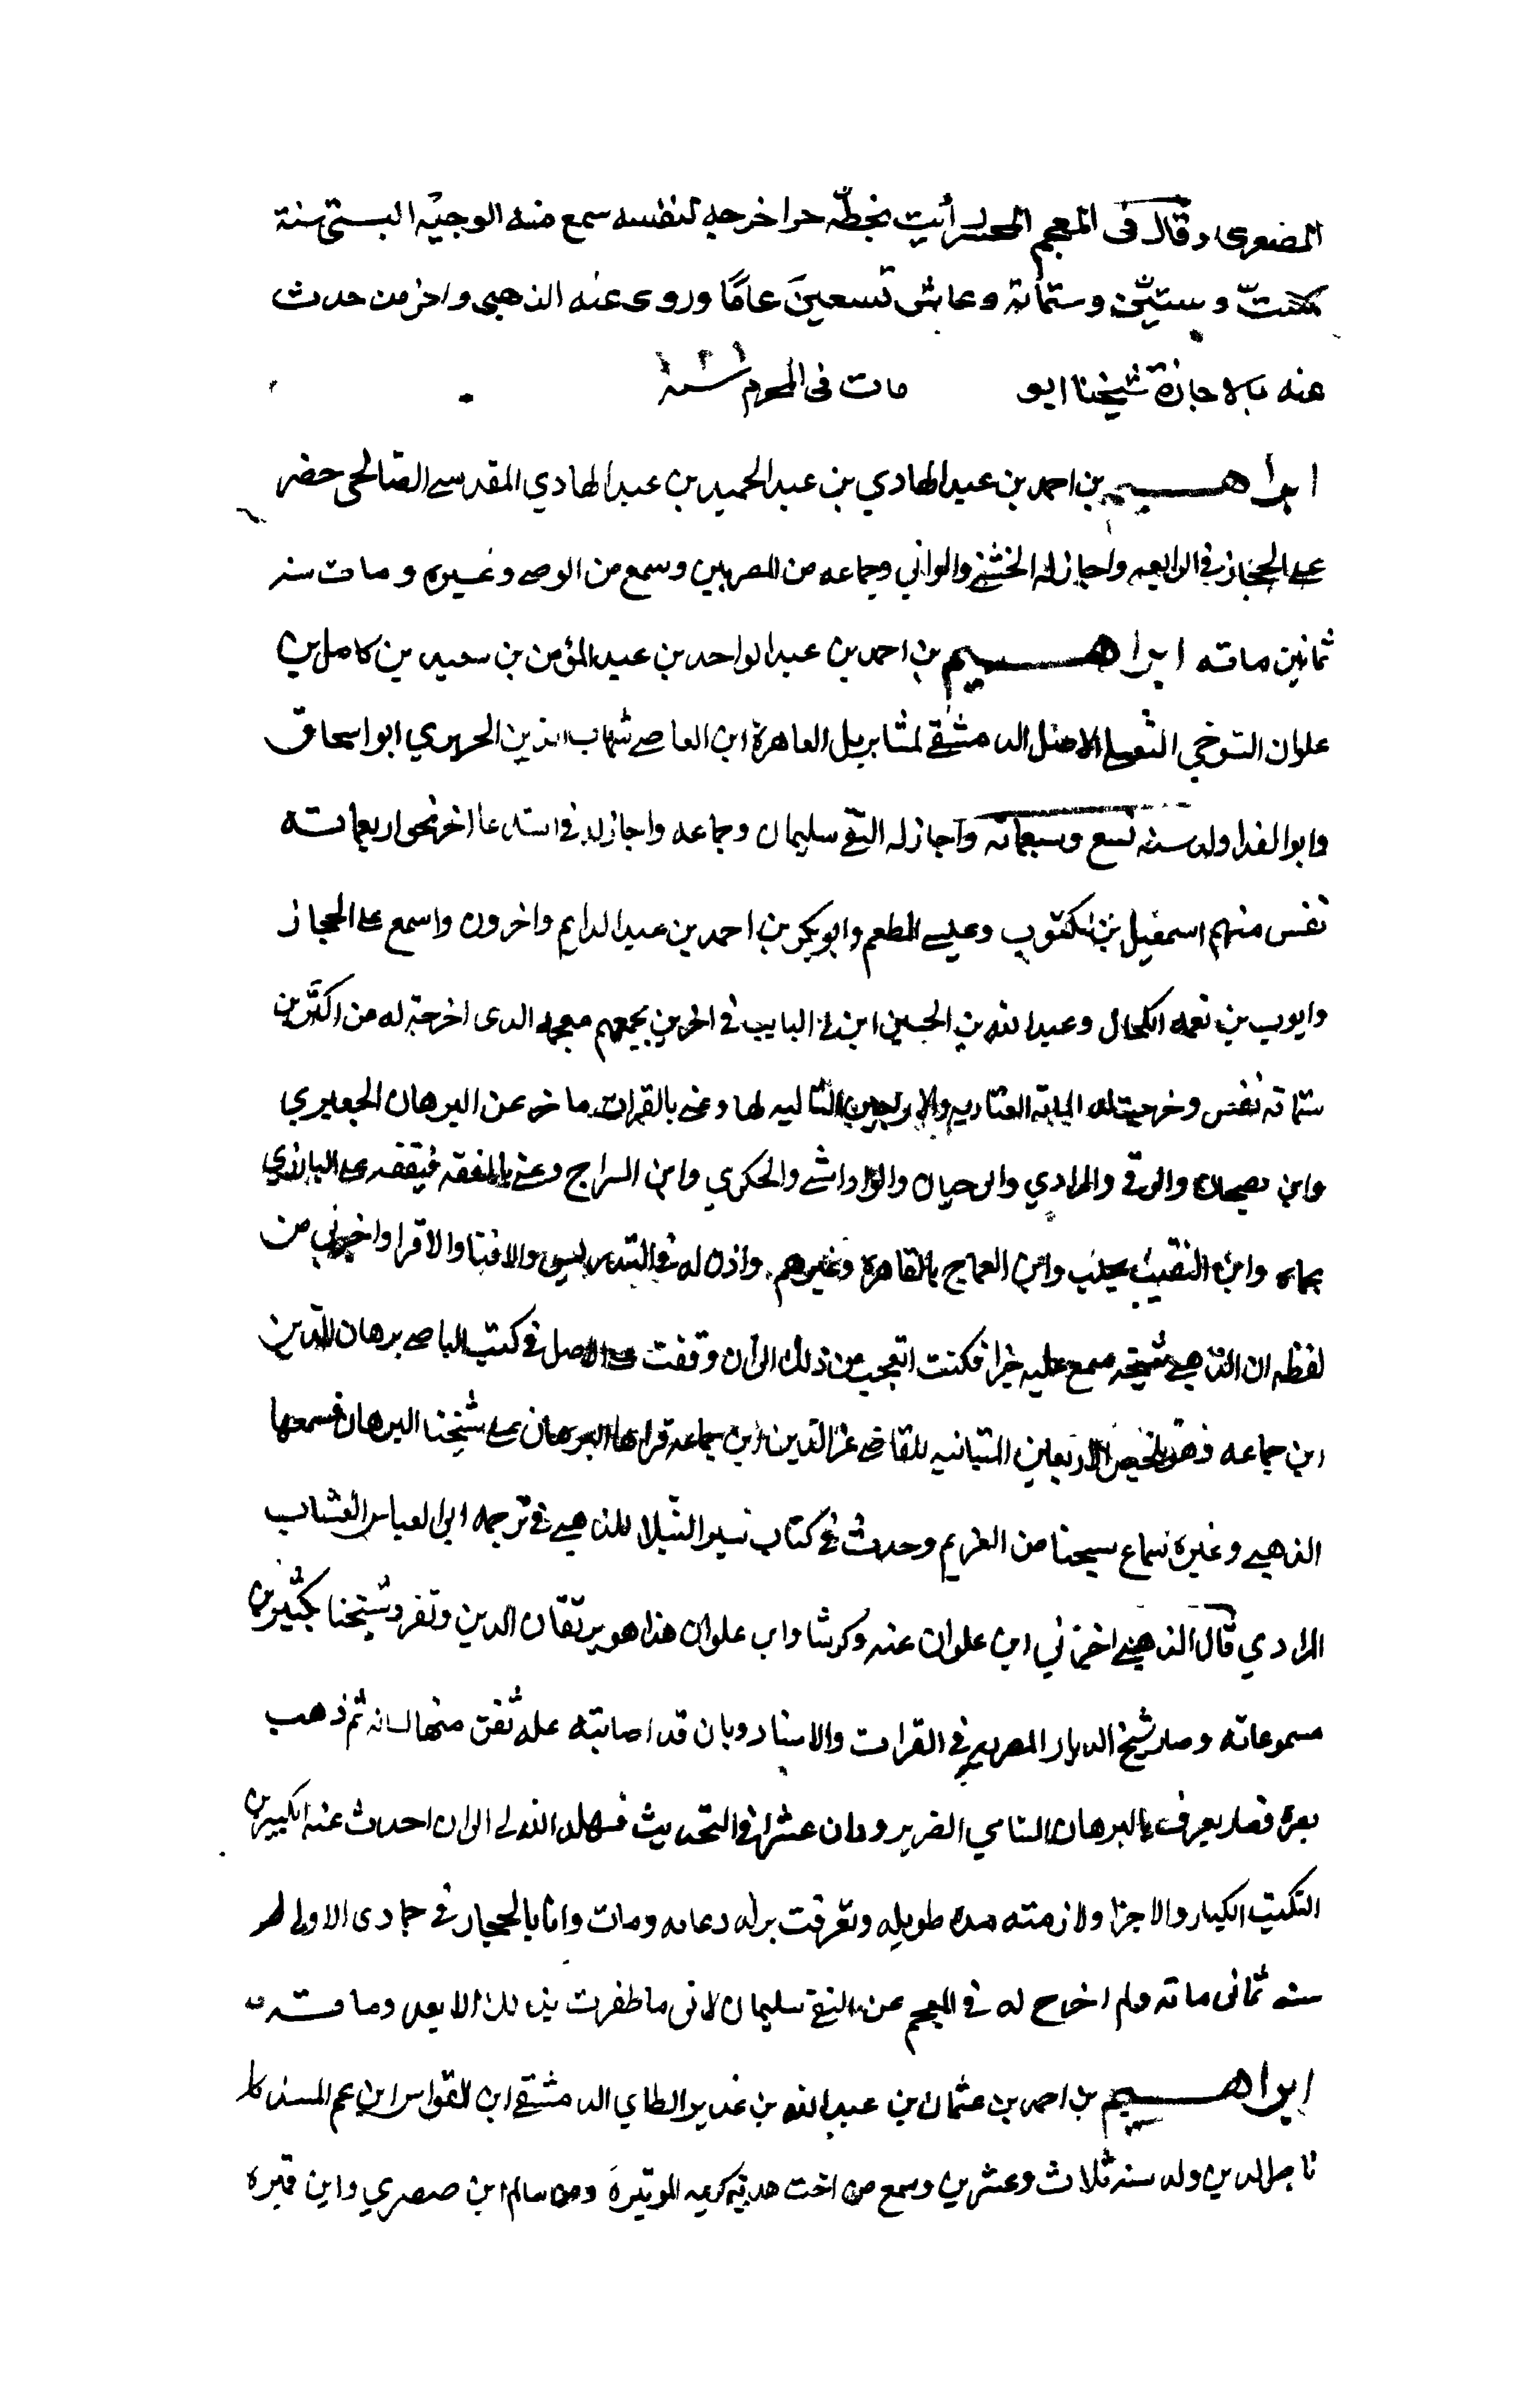 وقال فى المعجم رأيت بخطه جزا خرجه لنفسه سمع منه الوجيه السبتى سنة
ستّ وستّين وستمائة وعاش تسعين عامًا وروى عنه الذهبى واخر من حدث
عنه بالاجازة شيخنا ابو مات فى المحرم سنة ٧٢١
ابراهيم بن احمد بن عبد الهادي بن عبد الحميد بن عبد الهادي المقدسي الصالحي حضر
على الحجار في الرابعه واجاز له الختني والواني وجماعه من المصريين وسمع من وغيره ومات سنه
ثمانين مائه ابراهيم بن احمد بن عبد الواحد بن عبد المؤمن بن سعيد بن كامل بن
علوان التنوخي الاصل الدمشقي نزيل القاهرة ابن القاضي شهاب الدين الحريري ابو اسحاق
وابو الفدا ولد سنه تسع وسبعمائه واجاز له التقي سليمان وجماعه واجاز له في استدعا اخر نحو اربعمائه
نفس منهم اسمعيل بن مكتوم وعيسى المطعم وابو بكر بن احمد بن عبد الدايم واخرون واسمع على الحجار
وايوب بن نعمه الكحال وعبد الله بن الحسين ابن ابي التايب في اخرين يجمعهم معجمه الدى اخرجته له من اكثر من
ستمائه نفس وخرجت له المايه العشاريه والاربعين التاليه لها وعني بالقرات فاخذ عن البرهان الجعبري
وابن بصحان والرقي والمرادي وابي حيان والوادياشي والحكري وابن السراج وعني بالفقه فتفقه على البارزي
بحماه وابن النقيب بحلب وابن القماح بالقاهرة وغيرهم واذن له في التدريس والافتا والاقرا واخبرني من
لفظه ان الذهبي شيخه سمع عليه جزا فكنت اتعجب من ذلك الى ان وقفت على الاصل في كتب القاضي برهان الدين
ابن جماعه الاربعين المتباينه للقاضي عز الدين ابن جماعه قراها البرهان على شيخنا البرهان فسمعها
الذهبي وغيره بسماع شيخنا من العز وحدث في كتاب سير النبلا للذهبي في ترجمه ابي العباس العشاب
المرادي قال الذهبي اخبرني ابن علوان عنه وابن علوان هذا هو برهان الدين وتفرد شيخنا بكثير من
مسموعاته وصار شيخ الديار المصريه في القرات والاسناد وكان قد اصابته عله ثقل منها لسانه ثم ذهب
بصره فصار يعرف بالبرهان الشامي الضرير وكان عسرا في التحديث فسهله الله لى الى ان اخذت عنه الكثير من
الكتب الكبار والاجزا ولازمته مده طويله وتعرفت بركه دعايه ومات وانا بالحجاز في جمادى الاولى
سنه ثمانى مائه ولم اخرج له في المعجم عن التقي سليمان لانى ما ظفرت بذلك الا بعد وفاته
ابراهيم بن احمد بن عثمان بن عبد الله بن غدير الطاي الدمشقي ابن القواس ابن عم المسند
ناصر الدين ولد سنه ثلاث وعشرين وسمع من اخت جدته كريمه الزبيريه ومن سالم ابن صصري وابن قميره